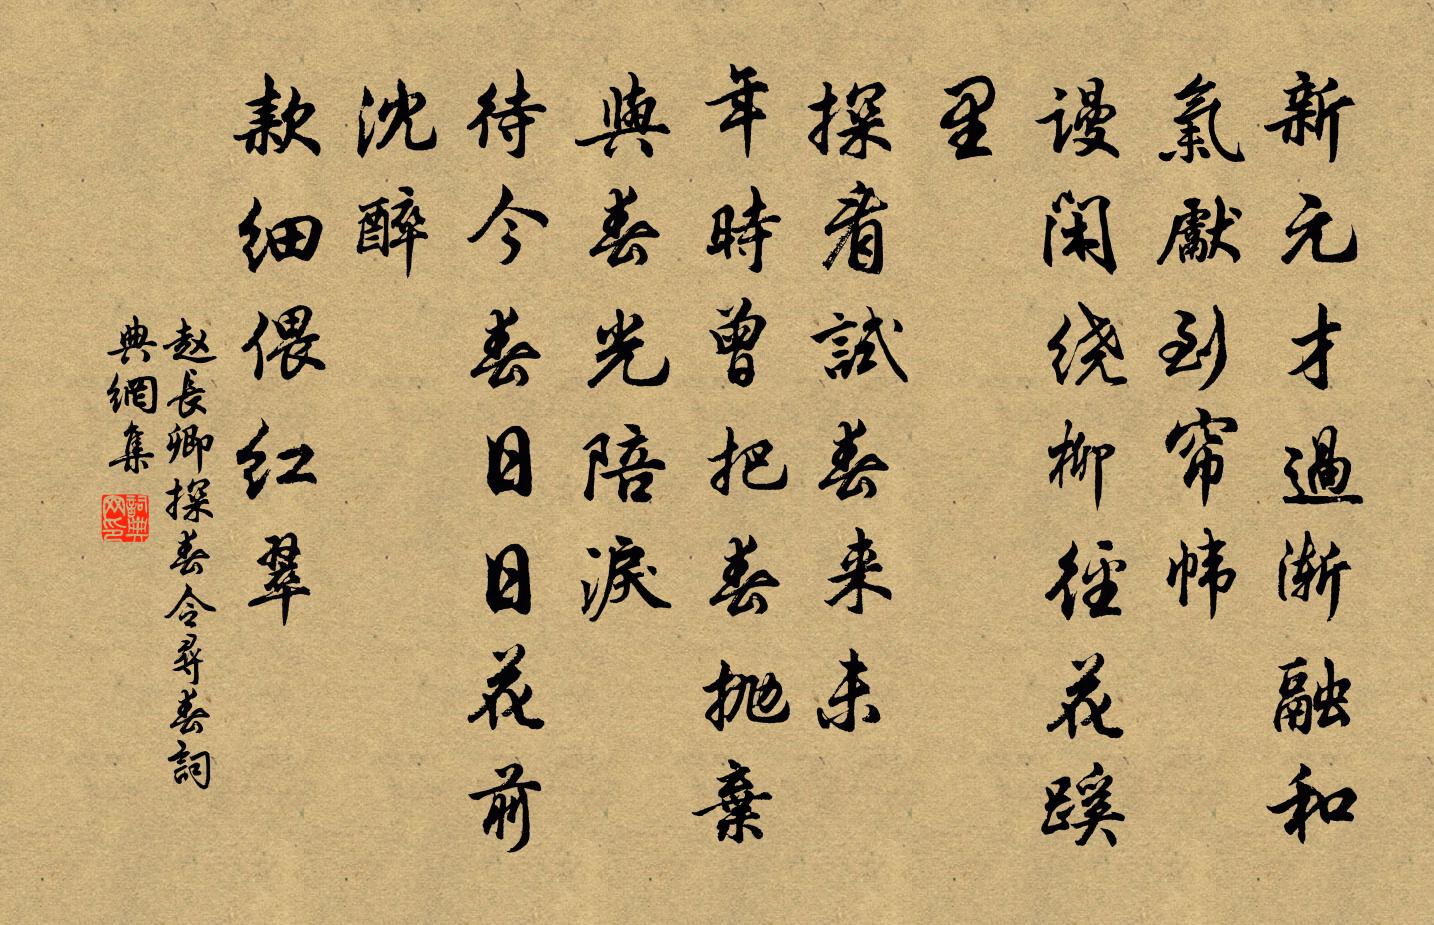 新元才過漸融和
氣獻到帘幃
谩闲绕柳徑花蹊
里
探看試春来未
年時曾把春抛棄
與春光陪淚
待今春日日花前
沈醉
款细偎红翠
赵長卿探春令尋春詞
典網集
詞典网印